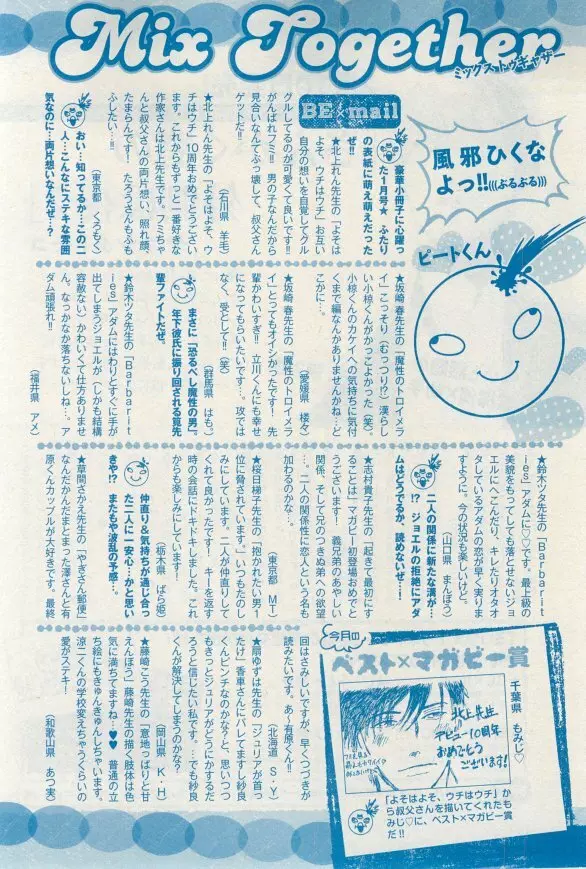 Mix Together
ミックス トゥギャザー
BE×mail
風邪ひくな
よっ!!(((ぶるぶる)))
ピートくん
豪華小冊子に心躍っ
た1月号★ ふたり
の表紙に萌え萌えだった
ぜ!!
★北上れん先生の「よそは
よそ、ウチはウチ」お互い
自分の想いを自覚してグル
グルしてるのが可愛くて良いです!!
がんばれフミ!! 男の子なんだから
見合いなんてぶっ壊して、叔父さん
ゲットだ!!
（石川県 羊毛）
★北上れん先生の「よそはよそ、ウ
チはウチ」10周年おめでとうござい
ます。これからもずっと一番好きな
作家さんは北上先生です。フミちゃ
んと叔父さんの両片想い、照れ顔、
たまらんです! たろうさんもふも
ふしたい…!!
（東京都 くろもく）
おい…知ってるか…この二
人…こんなにステキな雰囲
気なのに…両片想いなんだぜ…?
★坂崎春先生の「魔性のトロイメラ
イ」こっそり（むっつり!?）漢らし
い小椋くんがかっこよかった（笑）。
小椋くんのカケイへの気持ちに気付
くまで編なんかありませんかね…ど
こかに…。
（愛媛県 楼々）
★坂崎春先生の「魔性のトロイメラ
イ」とってもオイシかったです! 先
輩かわいすぎ!! 立川くんにも幸せ
になってもらいたいです…。攻では
なく、受として!!（笑）
（群馬県 はも。）
まさに「恐るべし魔性の男」
年下彼氏に振り回される筧先
輩ファイトだぜ。
★鈴木ツタ先生の「Barbarit
ies」アダムにはわりとすぐに手が
出てしまうジョエルが（しかも結構
容赦ない）かわいくて仕方ありませ
ん。なっかなか落ちないしね…。ア
ダム頑張れ!!
（福井県 アメ）
★鈴木ツタ先生の「Barbarit
ies」アダムに♡♡です。最上級の
美貌をもってしても落とせないジョ
エルにへこんだり、キレたりオタオ
タしているアダムの恋が早く実りま
すように。今の状況も楽しいけど。
（山口県 まんぼう）
二人の関係に新たな溝が…
!? ジョエルの拒絶にアダ
ムはどうでるか、読めないぜ…!
★志村貴子先生の「起きて最初にす
ることは」マガビー初登場おめでと
うございます! 義兄弟のあやしい
関係、そして兄のつきぬ弟への欲望
…。二人の関係性に恋人という名も
加わるのかな…。
（東京都 MT）
★桜日梯子先生の「抱かれたい男1
位に脅されています。」いつもたのし
みにしています。二人が仲直りして
くれて良かったです! キーを返す
時の会話にドキドキしました。これ
からも楽しみにしています!
（栃木県 ばら姫）
仲直り&気持ちが通じ合っ
た二人に一安心…かと思い
きや!? またもや波乱の予感…。
★草間さかえ先生の「やぎさん郵便」
なんだかんだまとまった澤さんと有
原くんカップルが大好きです。最終
回はさみしいですが、早くつづきが
読みたいです。あ～有原くん!!
（北海道 S・Y）
★扇ゆずは先生の「ジュリアが首っ
たけ」香車さんにバレてますし紗良
くんピンチなのかな?と、思いつつ
もきっとジュリアがどうにかするだ
ろうと信じたい私です。…でも紗良
くんが解決してしまうのかな?
（岡山県 K・H）
★藤崎こう先生の「意地っぱりと甘
えんぼう」藤崎先生の描く肢体は色
気に満ちてますね…♥♥ 普通の立
ち絵にもきゅんきゅんしちゃいます。
涼二くんの学校変えちゃうくらいの
愛がステキ!
（和歌山県 あつ実）
今月の
ベスト×マガビー賞
千葉県 もみじ♡
北上先生
デビュー10周年
おめでとう
ございます!
「よそはよそ、ウチはウチ」か
ら叔父さんを描いてくれたも
みじ♡に、ベスト×マガビー賞
だ!!